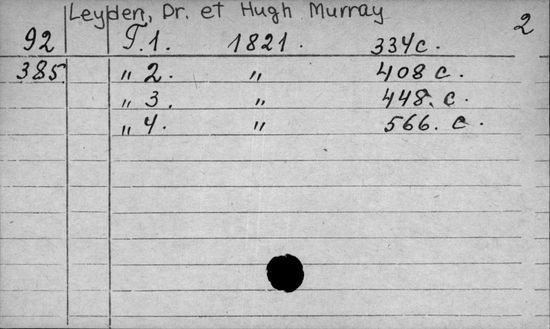 Leyden, Dr. et Hugh Murray
2
92 T.1. 1821. 334c.
385. " 2. " 408 c.
" 3. " 448. c.
" 4. " 566. c.